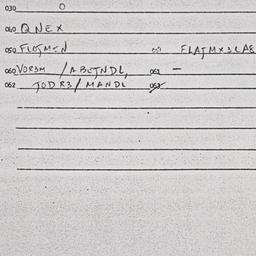 030 O
040 Q NEX
050 FLOTMEN FLATMX3LAE
060 VORSM / ABETNDL, 061 -
062 TODR3/ MANDL 063